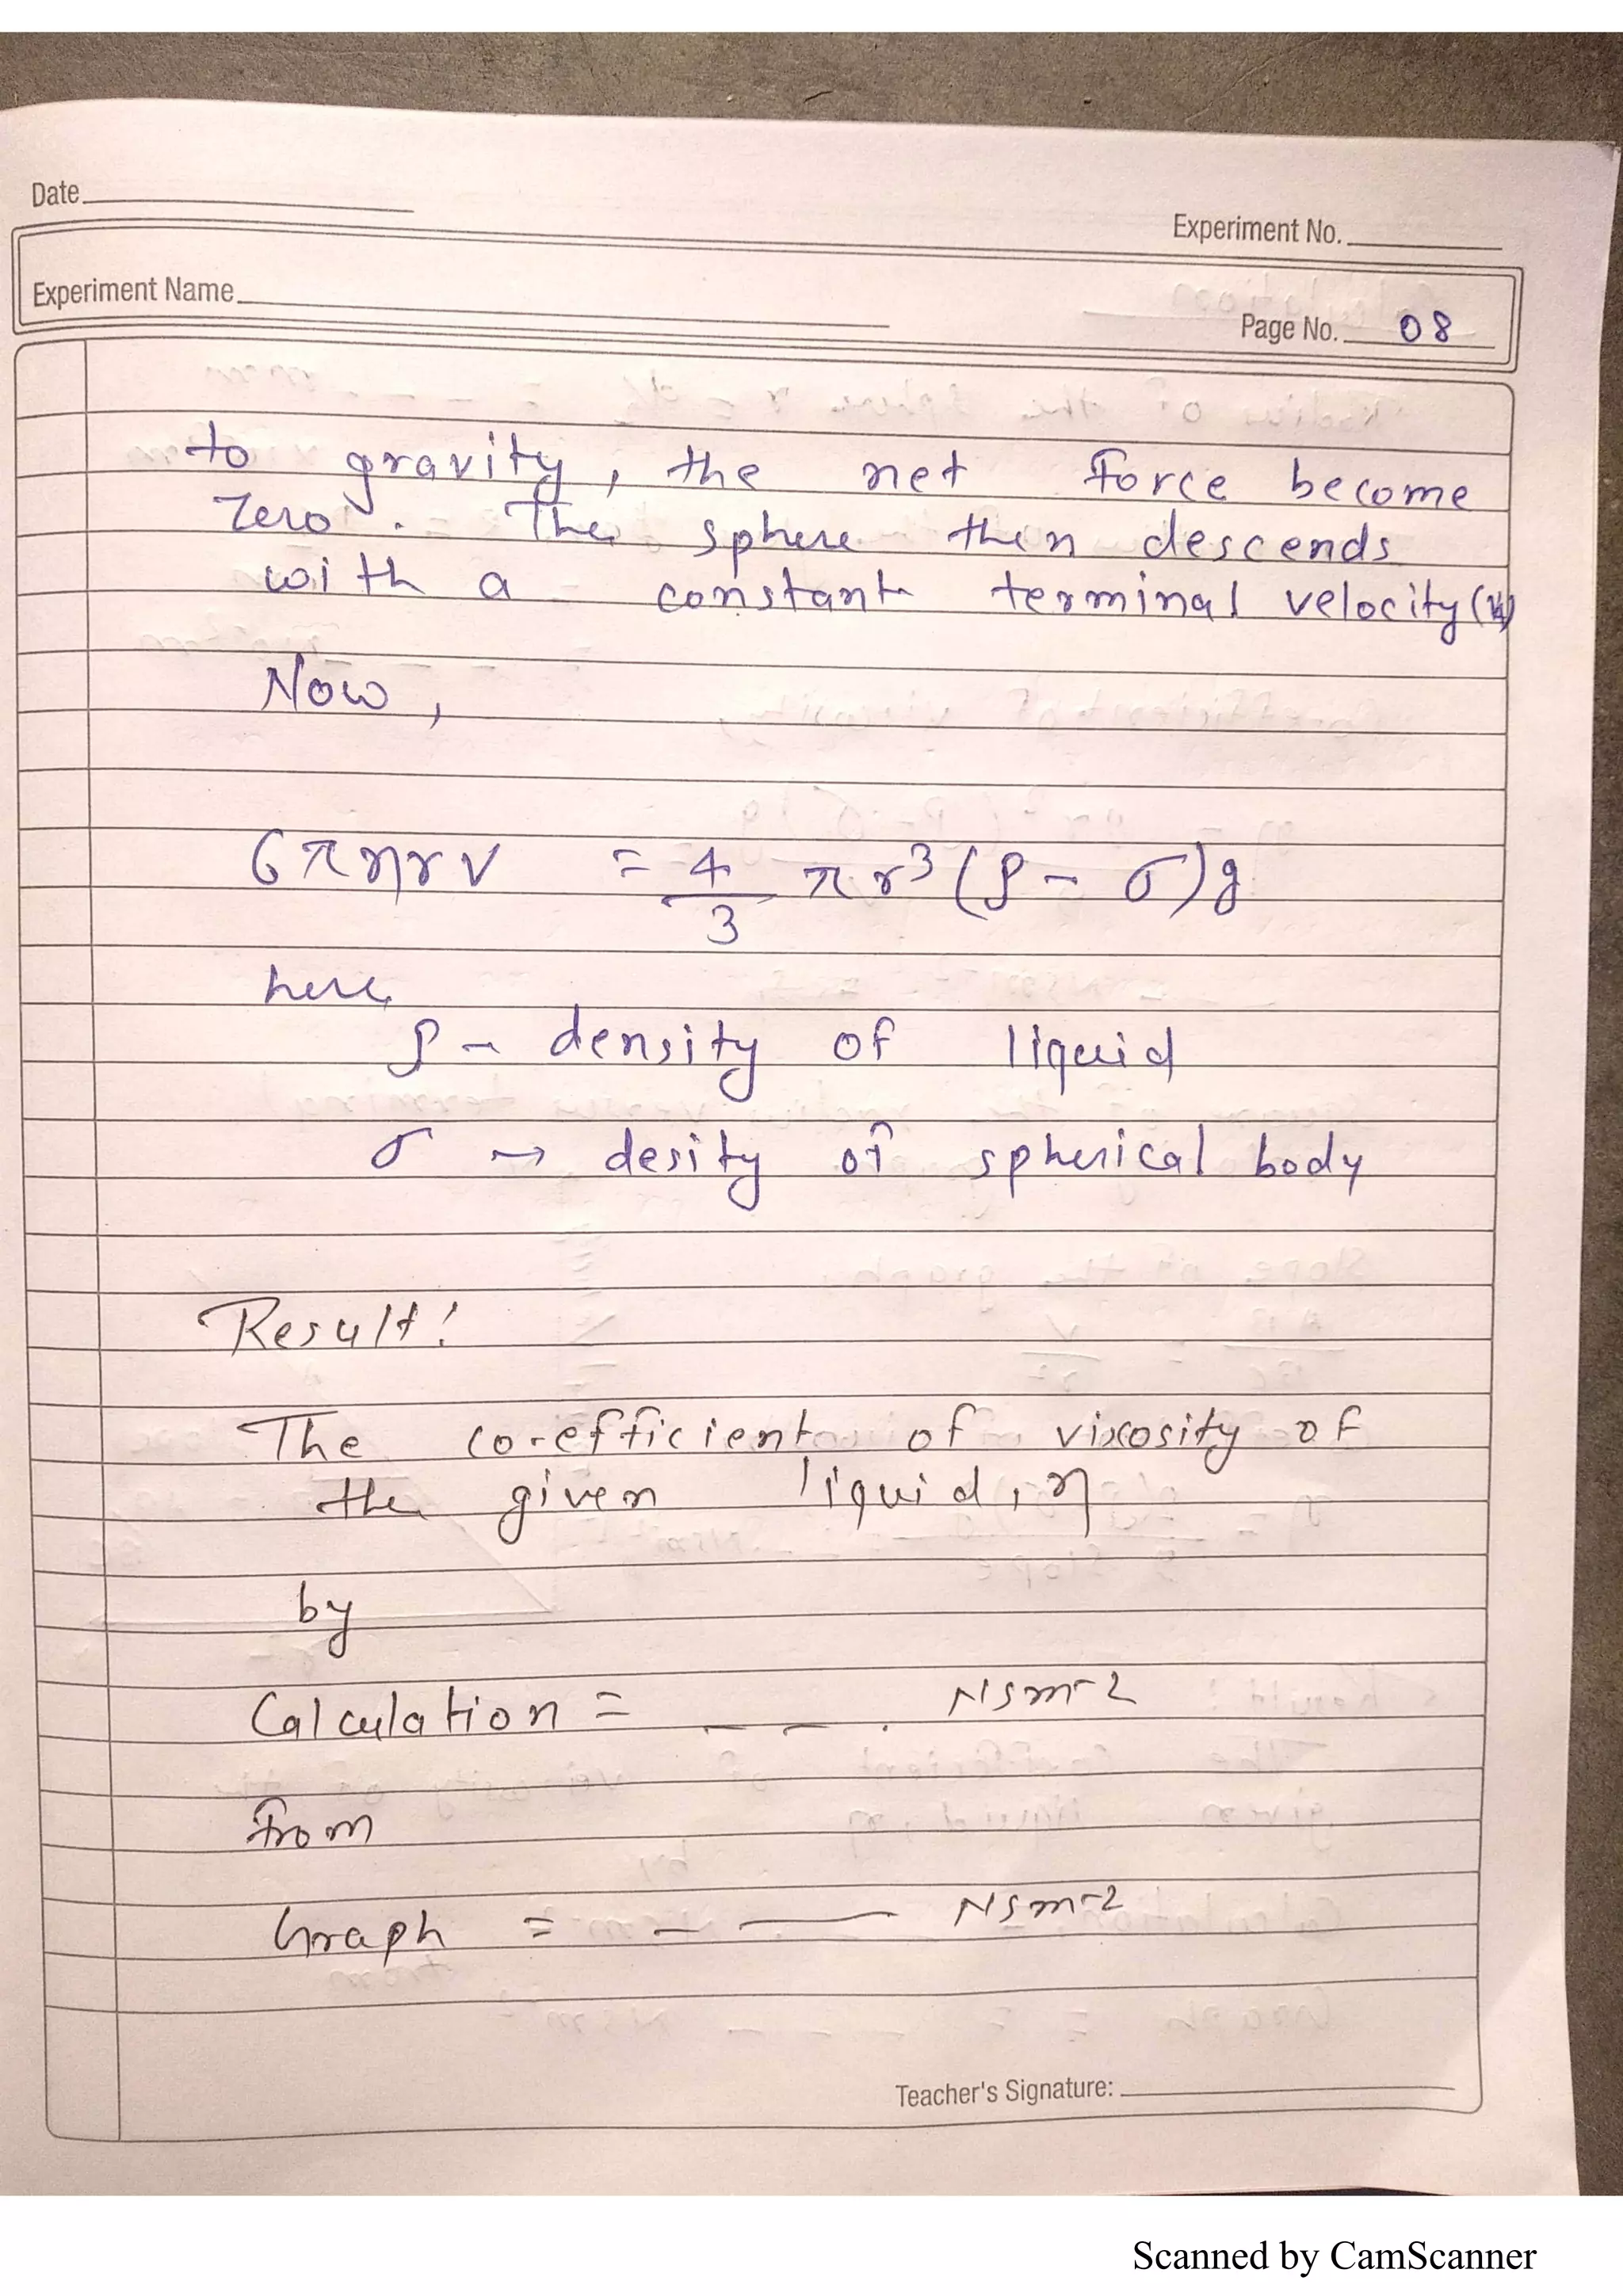 Date
Experiment No.
Experiment Name
Page No. 08
to gravity, the net force become
Zero. The sphere then descends
with a constant terminal velocity (v)
Now,
6πηrv = 4/3 πr³(ρ - σ)g
here,
ρ - density of liquid
σ → desity of spherical body
Result:
The co-efficient of viscosity of
the given liquid, η
by
Calculation = _ _ . Nsm-2
from
Graph = _ __ Nsm-2
Teacher's Signature:
Scanned by CamScanner